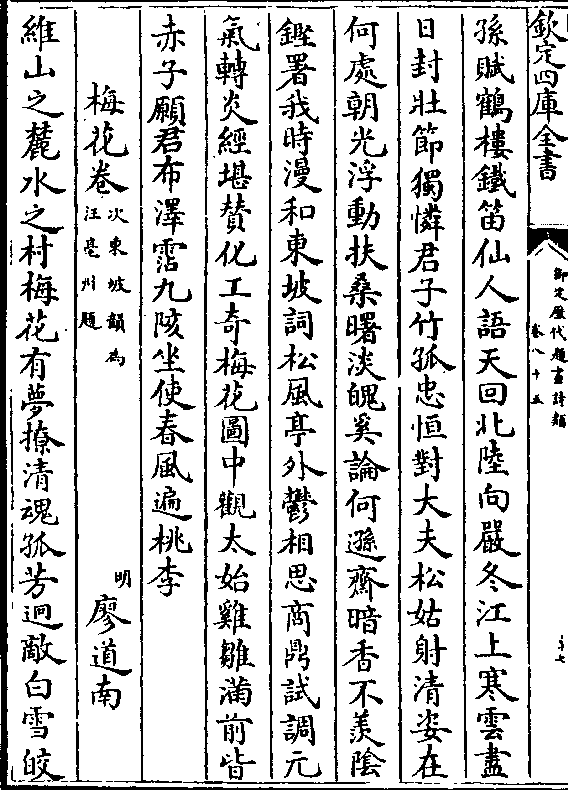 欽定四庫全書
御定歷代題畫詩類
卷八十五
孫賦鶴樓鐵笛仙人語天回北陸向嚴冬江上寒雲盡
日封壯節獨憐君子竹孤忠恒對大夫松姑射清姿在
何處朝光浮動扶桑曙淡魄奚論何遜齋暗香不羨陰
鏗署我時漫和東坡詞松風亭外鬱相思商鼎試調元
氣轉炎經堪贊化工奇梅花圖中觀太始雞雛滿前皆
赤子願君布澤霑九陔坐使春風遍桃李
梅花卷次東坡韻為汪亳州題
明 廖道南
維山之麓水之村梅花有夢撩清魂孤芳迥敵白雪皎